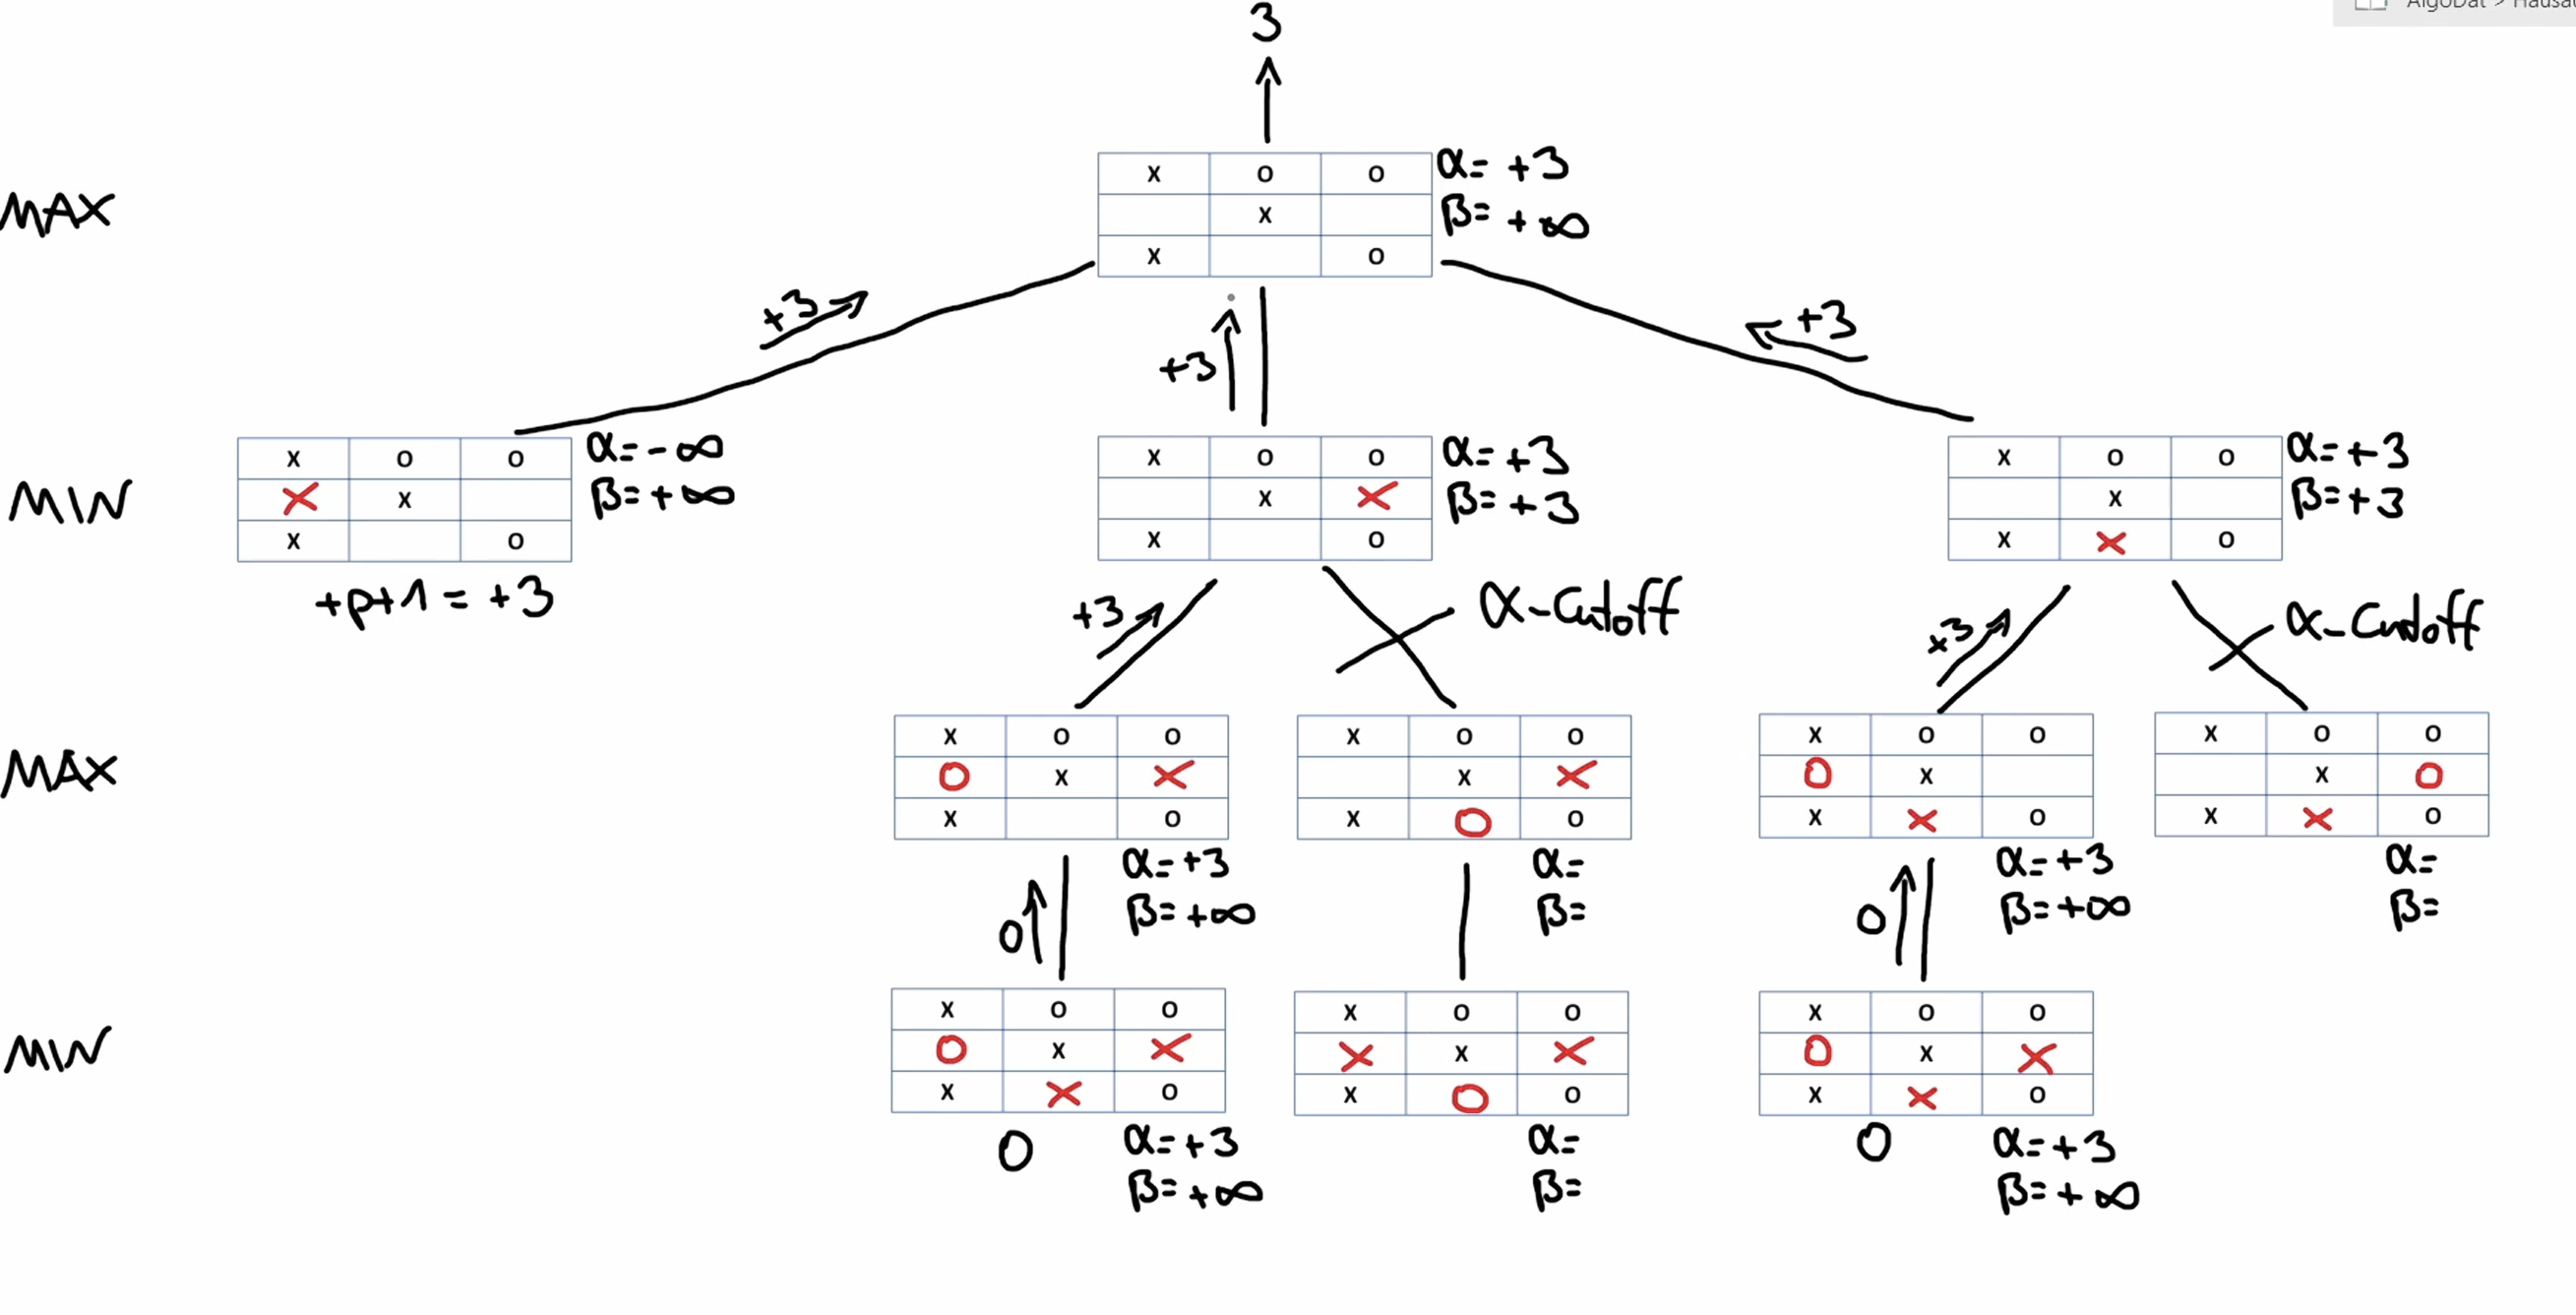 AlgoDat > Hausau
3
MAX
X O O
X
X O
α= +3
β= +∞
+3
+3
+3
MIN
X O O
X X
X O
α= -∞
β= +∞
+p+1 = +3
X O O
X X
X O
α= +3
β= +3
X O O
X
X X O
α= +3
β= +3
+3
α-Cutoff
+3
α-Cutoff
MAX
X O O
O X X
X O
α= +3
β= +∞
X O O
X X
X O O
α=
β=
X O O
O X
X X O
α= +3
β= +∞
X O O
X O
X X O
α=
β=
0
0
MIN
X O O
O X X
X X O
0
α= +3
β= +∞
X O O
X X X
X O O
α=
β=
X O O
O X X
X X O
0
α= +3
β= +∞